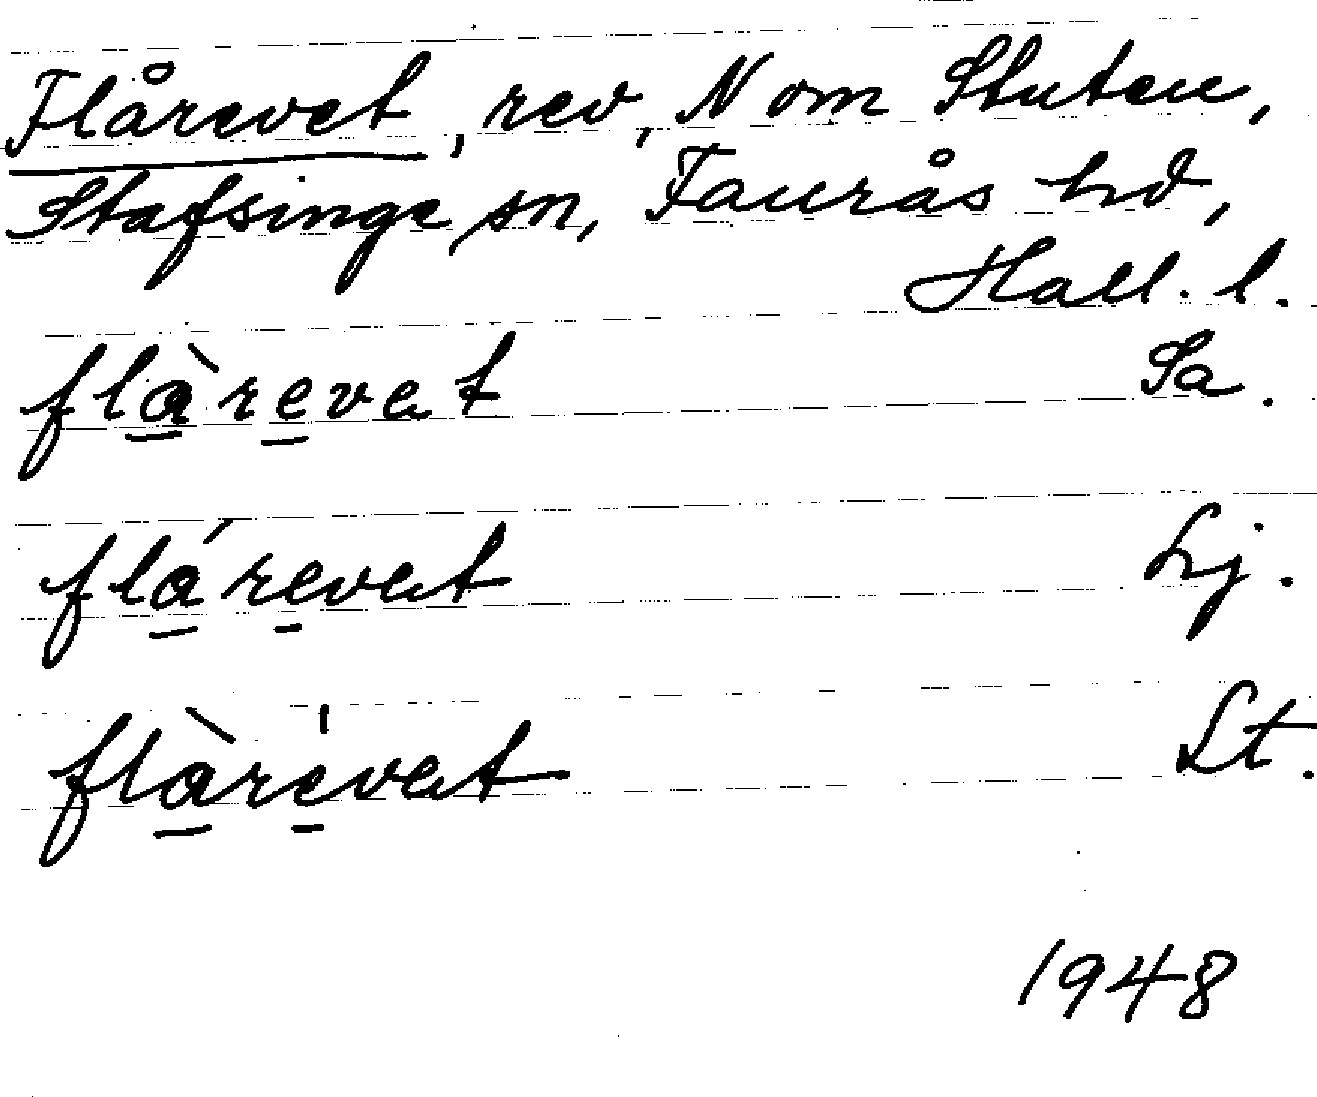 Flårevet, rev, N om Stuten,
Stafsinge sn, Faurås hd,
Hall. l.
flàrevet Sa.
flárevet Lj.
flàrévet Lt.
1948